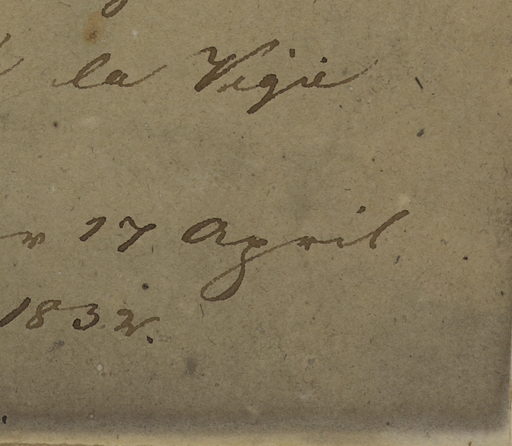 la Vigie
17 April
1832.